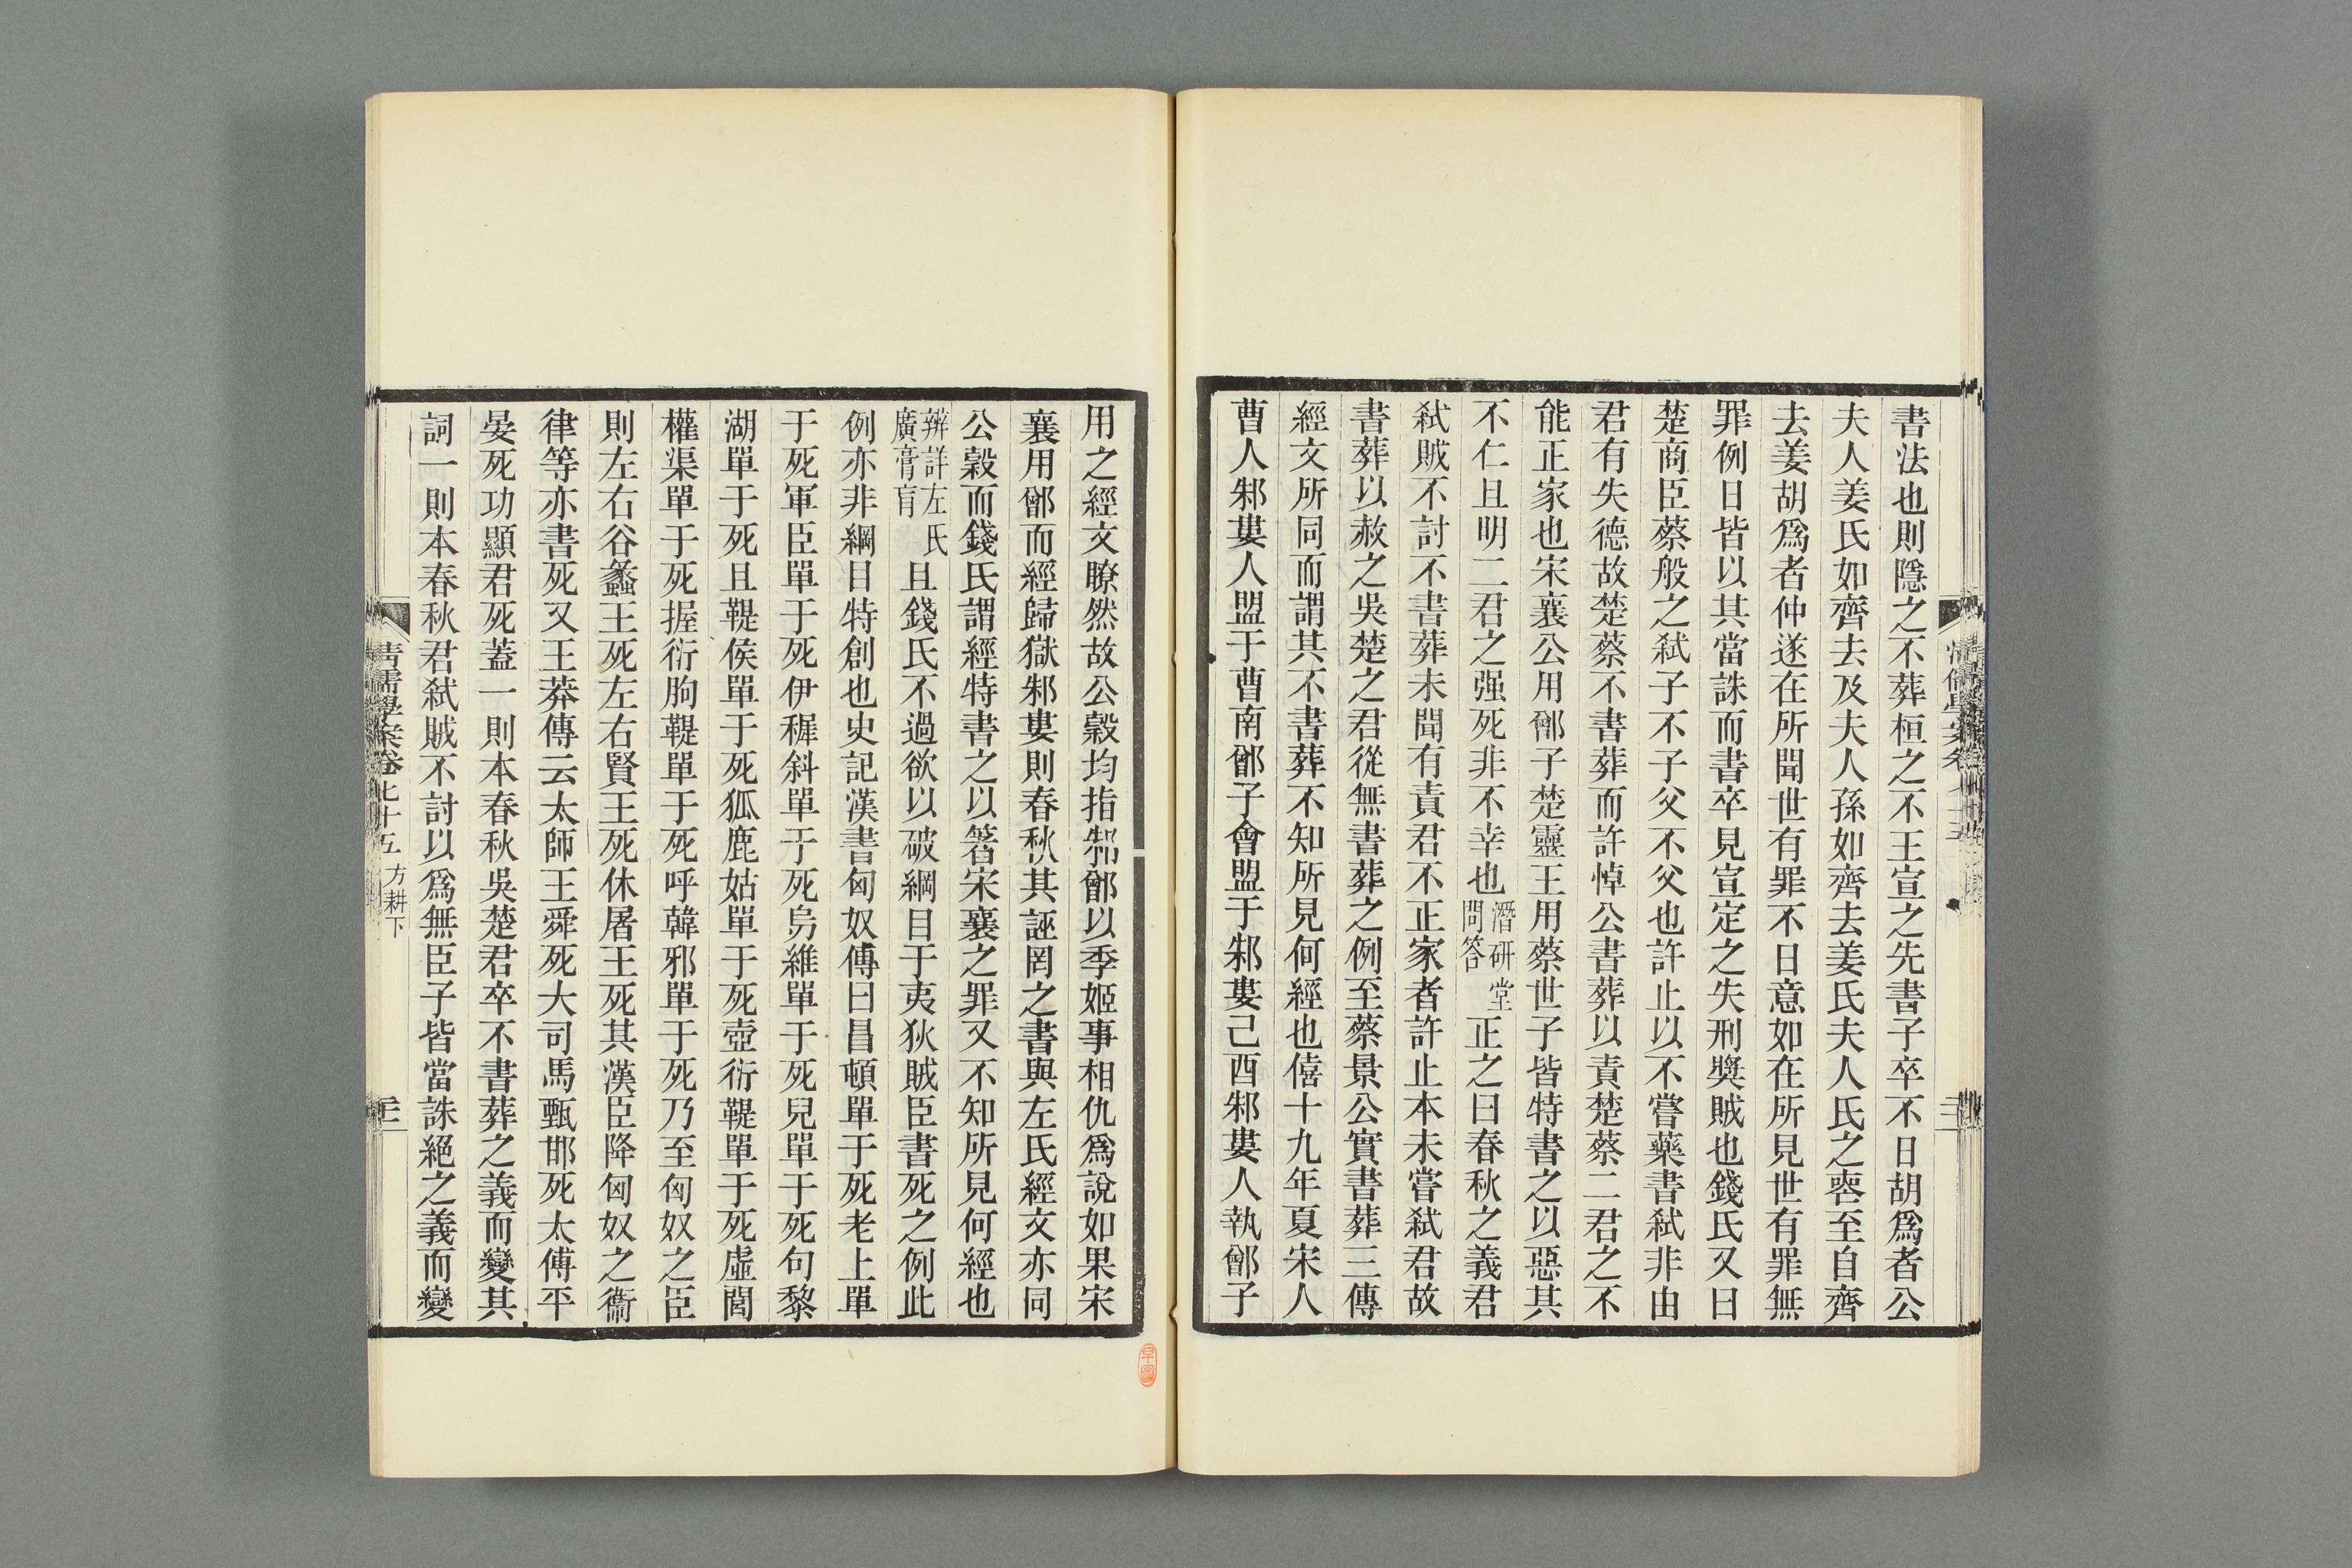 書法也則隱之不葬桓之不王宣之先書子卒不日胡爲者公
夫人姜氏如齊去及夫人孫如齊去姜氏夫人氏之喪至自齊
去姜胡爲者仲遂在所聞世有罪不日意如在所見世有罪無
罪例日皆以其當誅而書卒見宣定之失刑獎賊也錢氏又曰
楚商臣蔡般之弑子不子父不父也許止以不嘗藥書弑非由
君有失德故楚蔡不書葬而許悼公書葬以責楚蔡二君之不
能正家也宋襄公用鄫子楚靈王用蔡世子皆特書之以惡其
不仁且明二君之强死非不幸也潛研堂問答正之曰春秋之義君
弑賊不討不書葬未聞有責君不正家者許止本未嘗弑君故
書葬以赦之吳楚之君從無書葬之例至蔡景公實書葬三傳
經文所同而謂其不書葬不知所見何經也僖十九年夏宋人
曹人邾婁人盟于曹南鄫子會盟于邾婁己酉邾婁人執鄫子
用之經文瞭然故公穀均指邾鄫以季姬事相仇爲說如果宋
襄用鄫而經歸獄邾婁則春秋其誣罔之書與左氏經文亦同
公穀而錢氏謂經特書之以箸宋襄之罪又不知所見何經也
辨詳左氏廣膏肓且錢氏不過欲以破綱目于夷狄賊臣書死之例此
例亦非綱目特創也史記漢書匈奴傳曰昌頓單于死老上單
于死軍臣單于死伊穉斜單于死烏維單于死兒單于死句黎
湖單于死且鞮侯單于死狐鹿姑單于死壺衍鞮單于死虛閭
權渠單于死握衍朐鞮單于死呼韓邪單于死乃至匈奴之臣
則左右谷蠡王死左右賢王死休屠王死其漢臣降匈奴之衞
律等亦書死又王莽傳云太師王舜死大司馬甄邯死太傅平
晏死功顯君死蓋一則本春秋吳楚君卒不書葬之義而變其
詞一則本春秋君弑賊不討以爲無臣子皆當誅絕之義而變
清儒學案卷七十五 方耕下